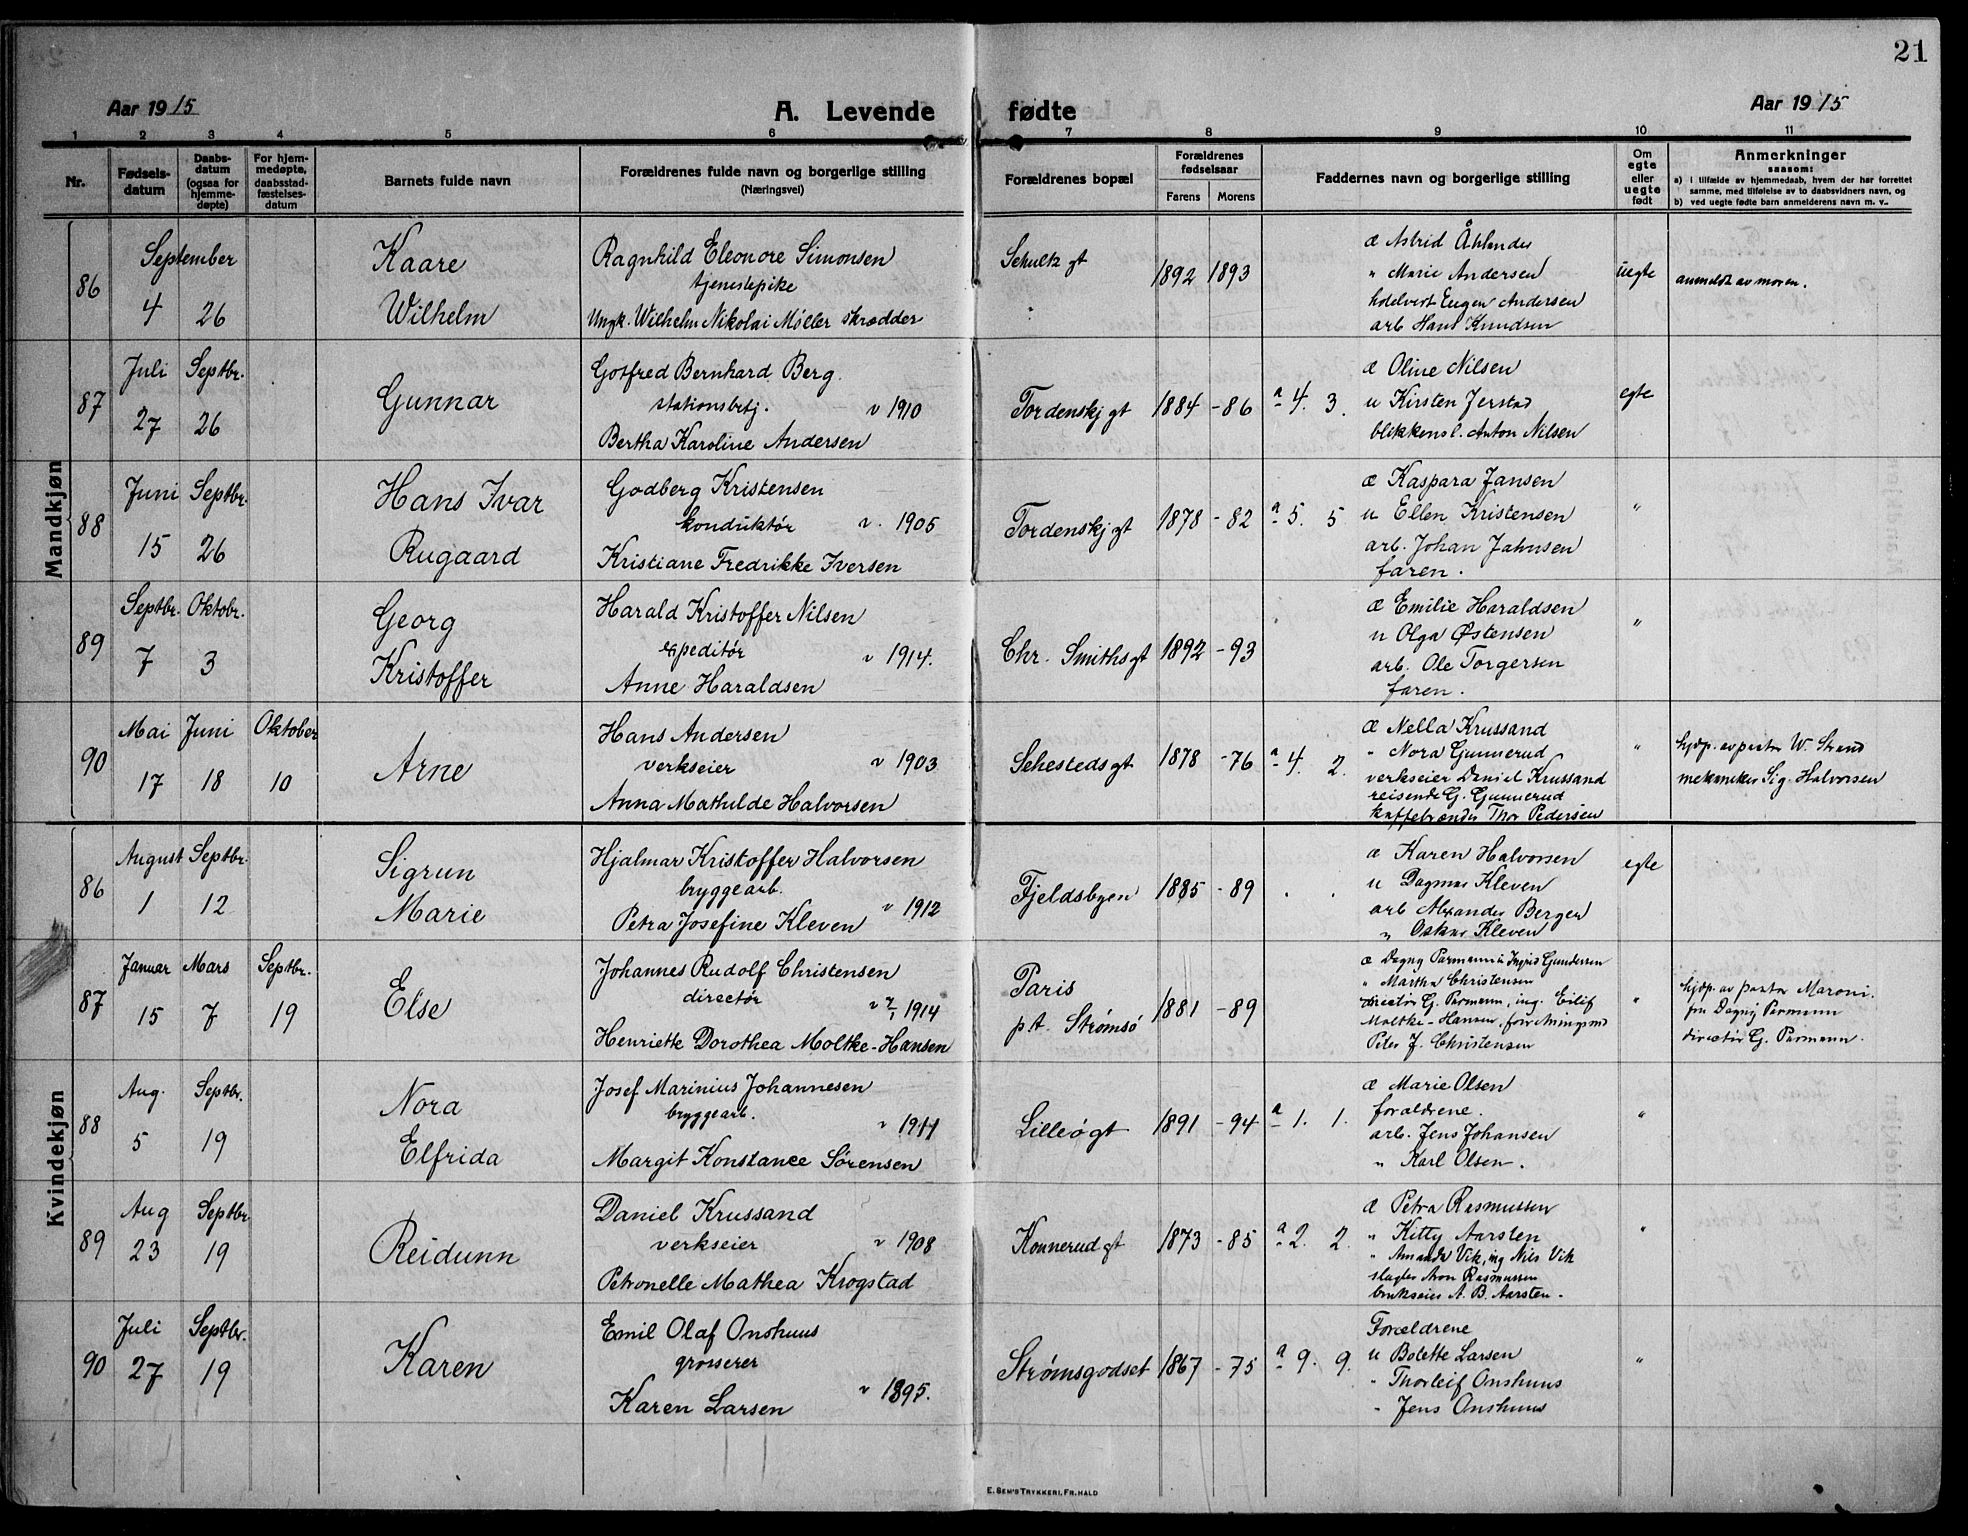 21
Aar 1915
A. Levende fødte
Aar 1915
1 2 3 4 5 6 7 8 9 10 11
Nr.
Fødsels-
datum
Daabs-
datum
(ogsaa for
hjemme-
døpte)
For hjem-
medøpte,
daabsstad-
fæstelses-
datum
Barnets fulde navn
Forældrenes fulde navn og borgerlige stilling
(Næringsvei)
Forældrenes bopæl
Forældrenes
fødselsaar
Farens Morens
Faddernes navn og borgerlige stilling
Om
egte
eller
uegte
født
Anmerkninger
saasom:
a) i tilfælde av hjemmedaab, hvem der har forrettet
samme, med tilføielse av to daabsvidners navn, og
b) ved uegte fødte barn anmelderens navn m. v..
Mandkjøn
86
September
4 26
Kaare
Wilhelm
Ragnhild Eleonore Simonsen
tjenestepike
Ungk. Wilhelm Nikolai Møller skrædder
Schultz gt
1892 1893
æ Astrid Åhlander
" Marie Andersen
Eugen Andersen
arb Hans Knudsen
uegte
anmeldt av moren.
87
Juli Septbr.
27 26
Gunnar
Gotfred Bernhard Berg.
stationsbetj. v 1910
Bertha Karoline Andersen
Tordenskj gt
1884 - 86
a 4. 3.
æ Oline Nilsen
u Kirsten Jerstad
blikkensl. Anton Nilsen
egte
88
Juni Septbr.
15 26
Hans Ivar
Rugaard
Godberg Kristensen
konduktør v. 1905
Kristiane Fredrikke Iversen
Tordenskj gt
1878 - 82
a 5. 5
æ Kaspara Jansen
u Ellen Kristensen
arb. Johan Jahnsen
faren.
"
89
Septbr. Oktobr.
7 3
Georg
Kristoffer
Harald Kristoffer Nilsen
expeditør v 1914.
Anne Haraldsen
Chr. Smithsgt
1892 - 93
æ Emilie Haraldsen
u Olga Østensen
arb. Ole Torgersen
faren.
"
90
Mai Juni Oktober
17 18 10
Arne
Hans Andersen
verkseier v 1903
Anna Mathilde Halvorsen
Sehestedsgt
1878 - 76
a 4. 2.
æ Nella Krussand
" Nora Gunnerud
verkseier Daniel Krussand
reisende G. Gunnerud
kaffebrænder Thor Pedersen
"
hjdp. av pastor W. Strand
mekaniker Sig. Halvorsen
Kvindekjøn
86
August Septbr.
1 12
Sigrun
Marie
Hjalmar Kristoffer Halvorsen
bryggearb.
v 1912
Petra Josefine Kleven
Fjeldsbyen
1885 - 89
æ Karen Halvorsen
u Dagmar Kleven
arb Alexander Berger
" Oskar Kleven
egte
87
Januar Mars Septbr.
15 7 19
Else
Johannes Rudolf Christensen
directør v 2/1 1914
Henriette Dorothea Moltke-Hansen
Paris
p.t. Strømsø
1881 - 89
æ Dagny Parmann Ingrid Gundersen
" Martha Christensen
directør G. Parmann, ing. Eilif
Moltke-Hansen, forretningsmd
Peter J. Christensen
"
hjdp. av pastor Maroni.
fru Dagny Parmann
directør G. Parmann.
88
Aug. Septbr.
5 19
Nora
Elfrida
Josef Marinius Johannesen
bryggearb.
v 1911
Margit Konstance Sørensen
Lilleøgt
1891 - 94
a 1. 1.
æ Marie Olsen
forældrene.
arb. Jens Johansen
" Karl Olsen.
"
89
Aug Septbr
23 19
Reidunn
Daniel Krussand
verkseier v 1908
Petronelle Mathea Krogstad
Konnerudgt
1873 - 85
a 2. 2.
æ Petra Rasmussen
" Kitty Aarsten
" Amanda Vik, ing Nils Vik
slagter Aron Rasmussen
brukseier A. B. Aarsten.
"
90
Juli Septbr.
27 19
Karen
Emil Olaf Onshuus
grosserer
v 1895.
Karen Larsen
Strømsgodset
1867 - 75
a 9. 9.
Forældrene
u Botette Larsen
" Thorleif Onshuus
" Jens Onshuus
"
E. SEM'S TRYKKERI, FR.HALD